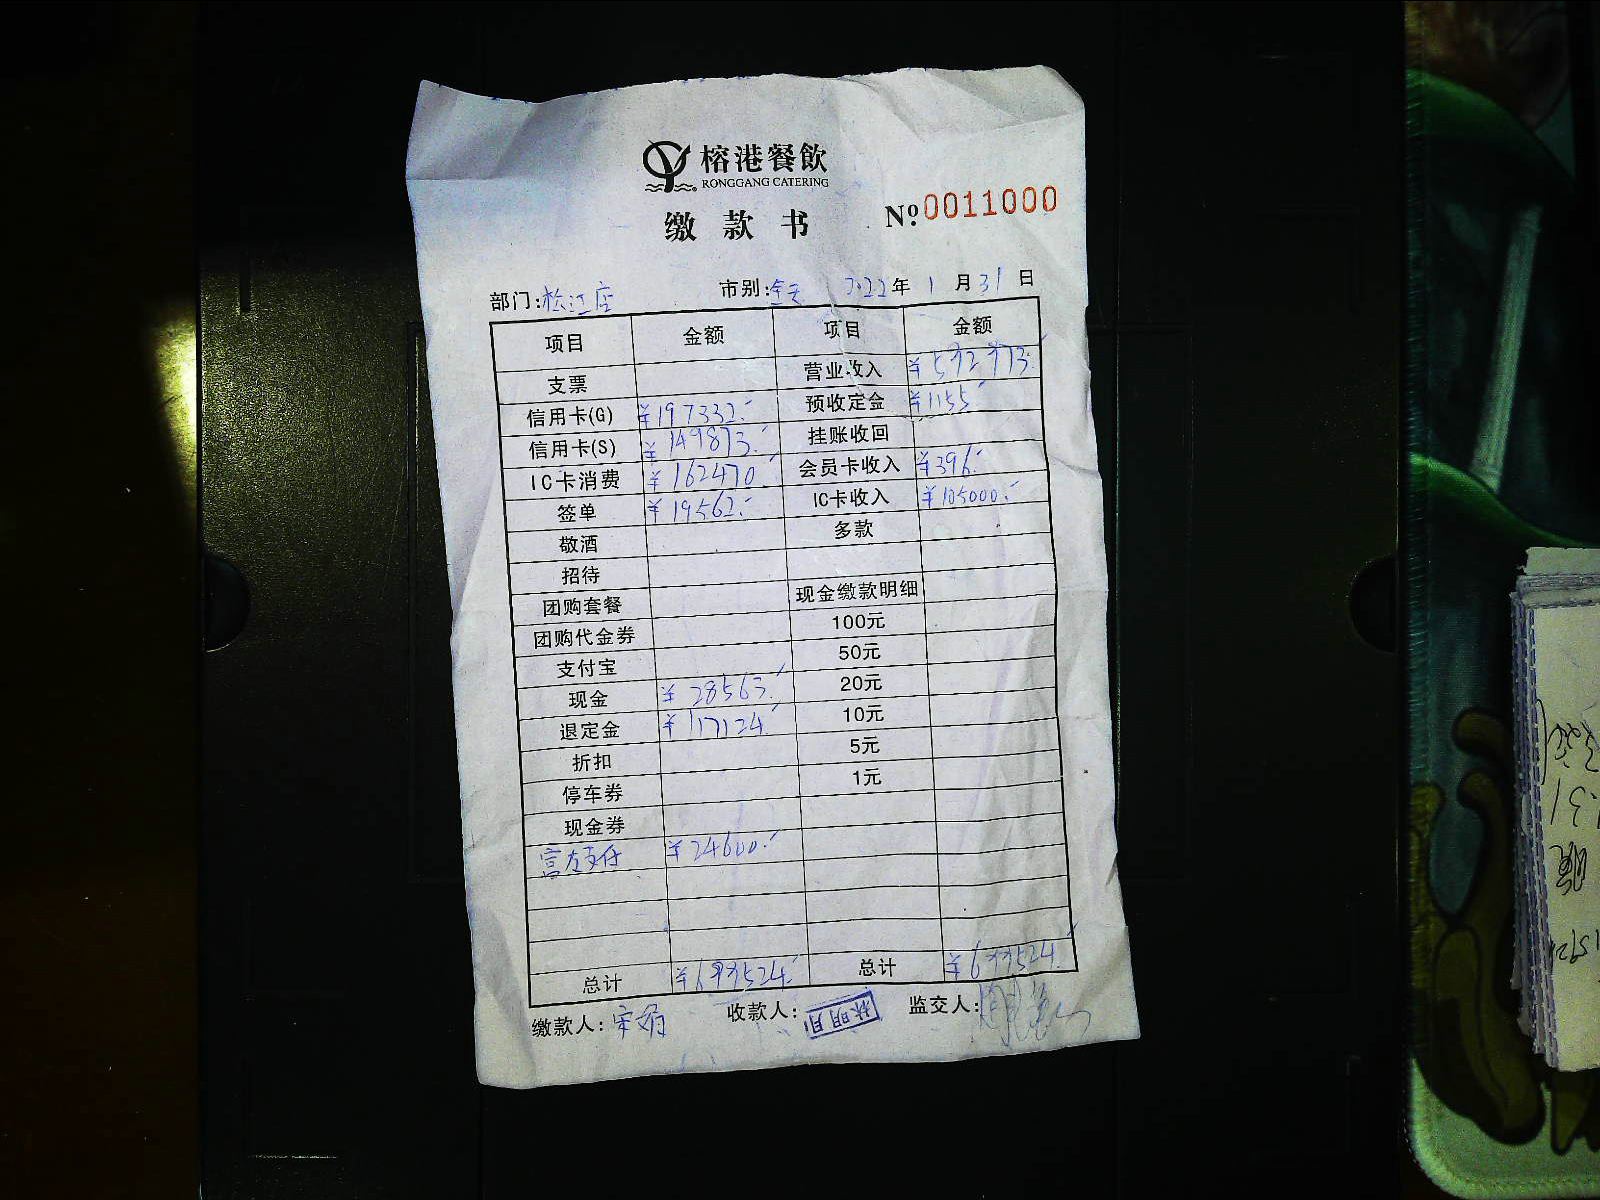 榕港餐飲
RONGGANG CATERING
缴款书 №0011000
部门:松江店 市别:全天 2022年1月31日
项目 金额 项目 金额
支票 营业收入 ¥592973.-
信用卡(G) ¥197332.- 预收定金 ¥1155.-
信用卡(S) ¥149873.- 挂账收回
IC卡消费 ¥162470.- 会员卡收入 ¥396.-
签单 ¥19562.- IC卡收入 ¥105000.-
敬酒 多款
招待
团购套餐 现金缴款明细
团购代金券 100元
支付宝 50元
现金 ¥28563.- 20元
退定金 ¥117124.- 10元
折扣 5元
停车券 1元
现金券
官方支付 ¥24600.-
总计 ¥699524.- 总计 ¥699524.-
缴款人:宋娟 收款人:林明月 监交人: